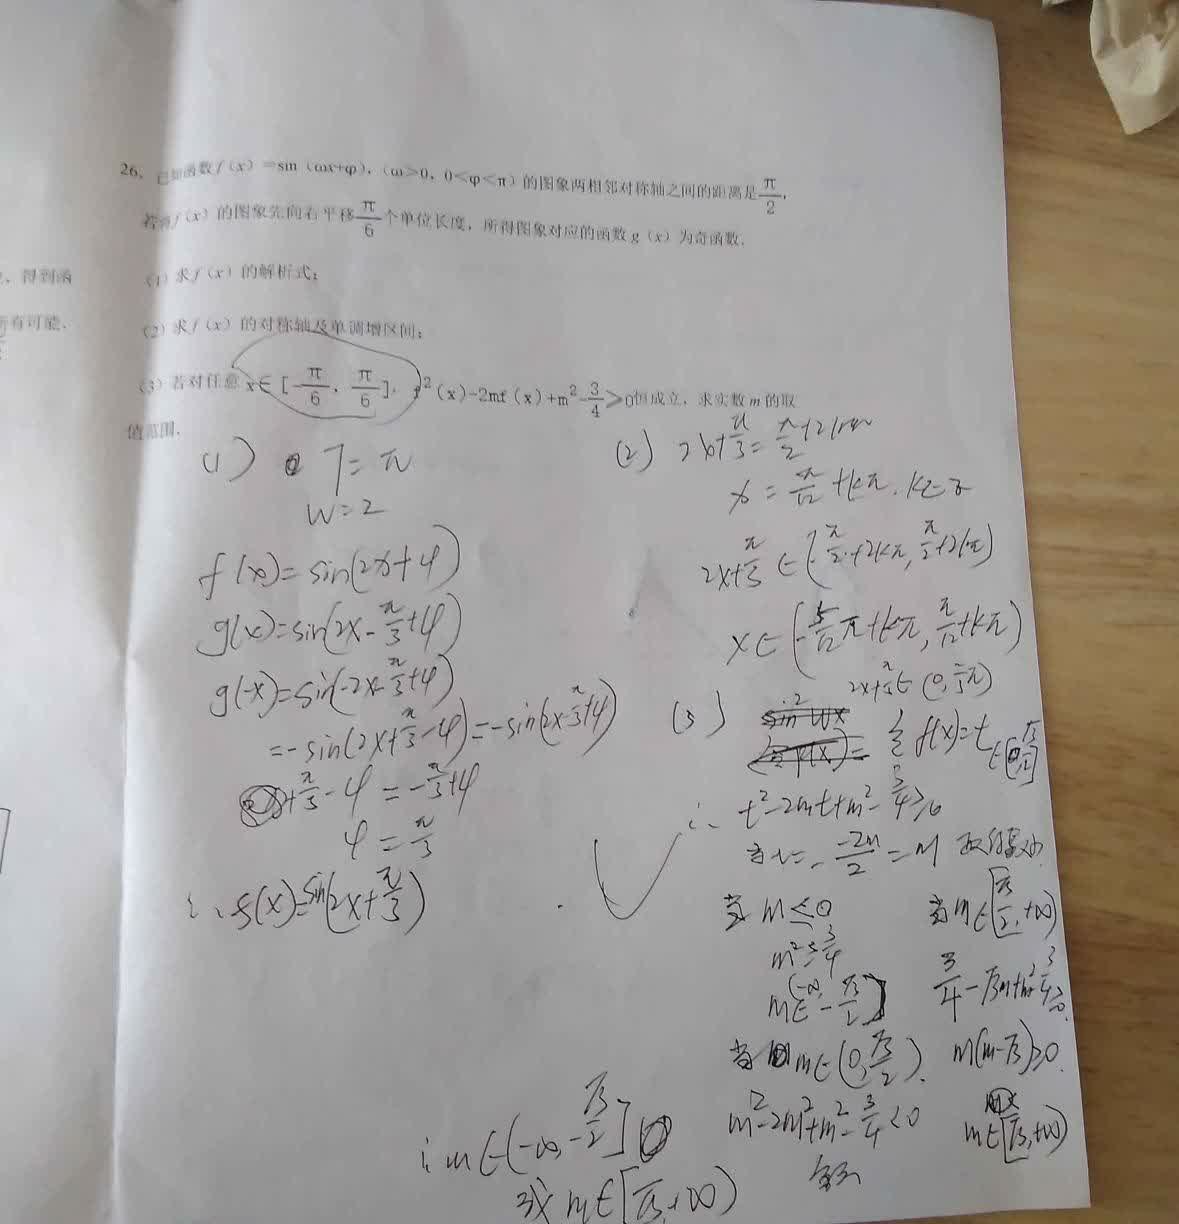 26、已知函数f(x)=sin(ωx+φ),(ω>0,0<φ<π)的图象两相邻对称轴之间的距离是π/2,
若将f(x)的图象先向右平移π/6个单位长度,所得图象对应的函数g(x)为奇函数.
(1)求f(x)的解析式;
(2)求f(x)的对称轴及单调增区间;
(3)若对任意x∈[-π/6,π/6],f²(x)-2mf(x)+m²-3/4≥0恒成立,求实数m的取
值范围.
、得到函
所有可能.
(1) T=π
W=2
f(x)=sin(2x+φ)
g(x)=sin(2x-π/3+φ)
g(-x)=sin(-2x-π/3+φ)
=-sin(2x+π/3-φ)=-sin(2x-π/3+φ)
+π/3-φ=-π/3+φ
φ=π/3
∴f(x)=sin(2x+π/3)
(2) 2x+π/3=π/2+2kπ
x=π/12+kπ,k∈Z
2x+π/3∈(-π/2+2kπ,π/2+2kπ)
x∈(-5/12π+kπ,π/12+kπ)
2x+π/3∈(0,2/3π)
(3) f(x)=t
t²-2mt+m²-3/4≥0
当t=-(-2m/2)=m 取得最小
当m≤0
m²≥3/4
m∈(-∞,-√3/2]
当m∈(0,√3/2).
m²-2m²+m²-3/4<0
当m∈[√3/2,+∞)
3/4-√3m+m²-3/4≥0.
m(m-√3)≥0.
m∈[√3,+∞)
∴m∈(-∞,-√3/2]
或m∈[√3,+∞)